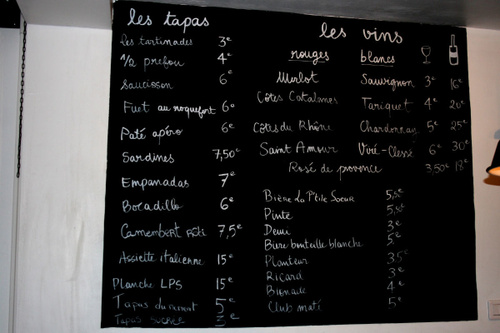 les tapas
les tartinades 3€
1/2 prefou 4€
saucisson 6€
Fuet au roquefort 6€
Paté apéro 6€
Sardines 7,50€
Empanadas 7€
Bocadillo 6€
Camembert rôti 7,5€
Assiette italienne 15€
Planche LPS 15€
Tapas du moment 5€
Tapas sucrée
les vins
rouges blancs
Merlot Sauvignon 3€ 16€
Côtes Catalanes Tariquet 4€ 20€
Côtes du Rhône Chardonnay 5€ 25€
Saint Amour Viré-Clessé 6€ 30€
Rosé de provence 3,50€ 18€
Bière La P'tite Soeur 5,5€
Pinte 5,5€
Demi 3€
Bière bouteille blanche 5€
Planteur 3,5€
Ricard 3€
Bionade 4€
Club maté 5€